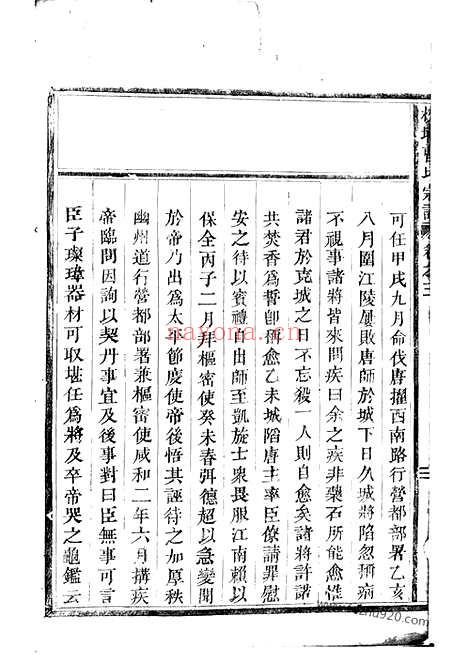 氏宗譜
卷之三
可任甲戌九月命伐唐擢西南路行營都部署乙亥
八月圍江陵屢敗唐師於城下日久城將陷忽稱病
不視事諸將皆來問疾曰余之疾非藥石所能愈慌
諸君於克城之日不忘殺一人則自愈矣諸將許諾
共焚香為誓卽稱愈乙未城陷唐主率臣僚請罪慰
安之待以賓禮自出師至凱旋士衆畏服江南賴以
保全丙子二月拜樞密使癸未春弭德超以急變聞
於帝乃出為太平節度使帝後悟其誣待之加厚秩
幽州道行營都部署兼樞密使咸和二年六月搆疾
帝臨問因詢以契丹事宜及後事對曰臣無事可言
臣子璨瑋器材可取堪任為將及卒帝哭之龜鑑云
nayona.cn